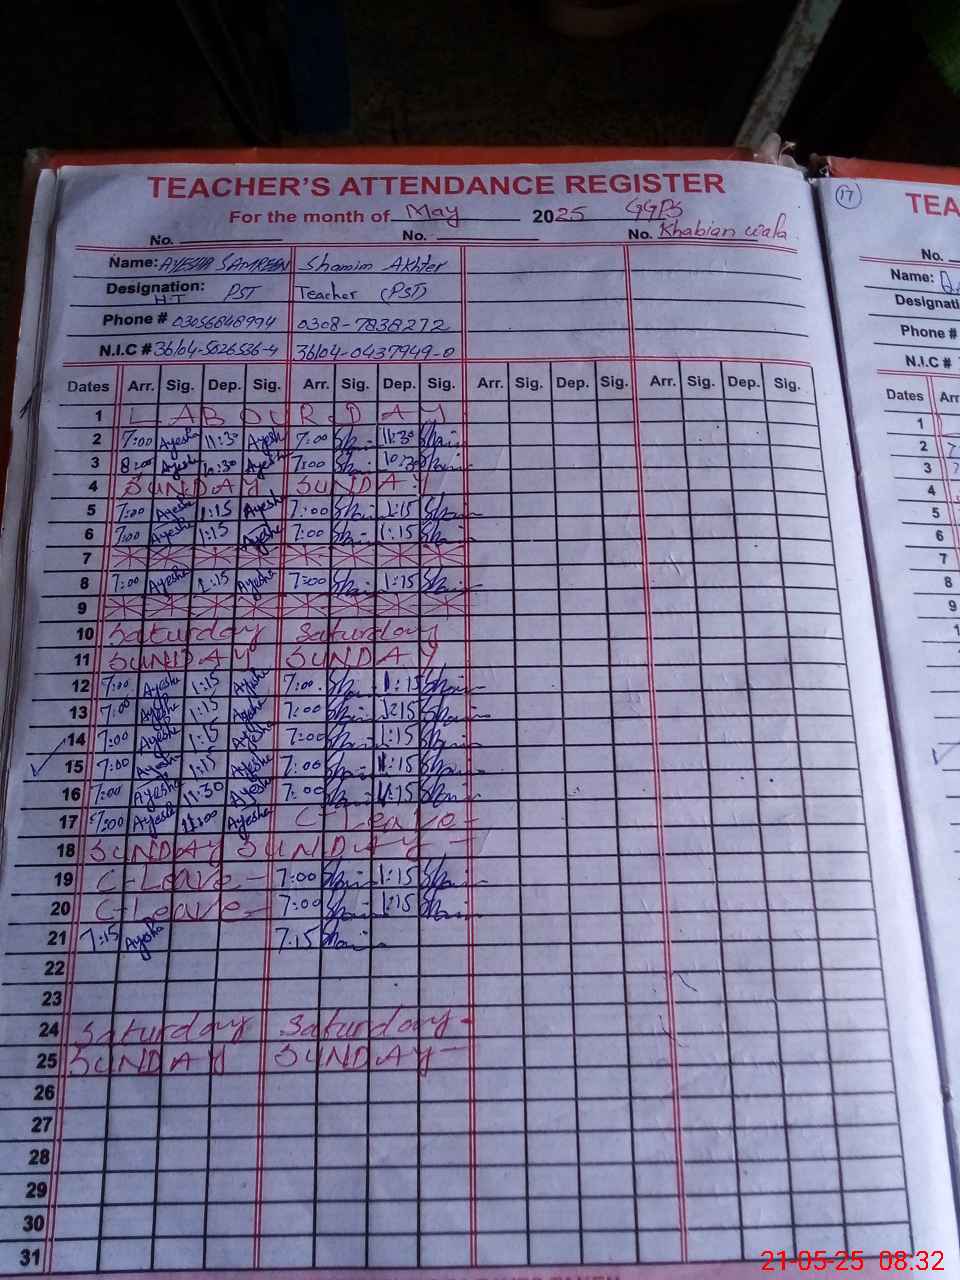 TEACHER'S ATTENDANCE REGISTER
For the month of May 2025 GGPS
No. No. No. Khabian wala
Name: AYESHA SAMREEN Shamim Akhter
Designation: H.T PST Teacher (PST)
Phone # 03056848994 0308-7838272
N.I.C # 36104-5026536-4 36104-0437949-0
Dates Arr. Sig. Dep. Sig. Arr. Sig. Dep. Sig. Arr. Sig. Dep. Sig. Arr. Sig. Dep. Sig.
1 LABOUR DAY
2 7:00 Ayesha 11:30 Ayesha 7:00 11:30
3 8:00 Ayesha 10:30 Ayesha 7:00 10:30
4 SUNDAY SUNDAY
5 7:00 Ayesha 1:15 Ayesha 7:00 1:15
6 7:00 Ayesha 1:15 Ayesha 7:00 1:15
7
8 7:00 Ayesha 1:15 Ayesha 7:00 1:15
9
10 Saturday Saturday
11 SUNDAY SUNDAY
12 7:00 Ayesha 1:15 Ayesha 7:00 1:15
13 7:00 Ayesha 1:15 Ayesha 7:00 1:15
14 7:00 Ayesha 1:15 Ayesha 7:00 1:15
15 7:00 Ayesha 1:15 Ayesha 7:00 1:15
16 7:00 Ayesha 11:30 Ayesha 7:00
17 7:00 Ayesha 11:00 Ayesha C-Leave-
18 SUNDAY SUNDAY -
19 C-Leave- 7:00 1:15
20 C-Leave- 7:00 1:15
21 7:15 Ayesha 7:15
22
23
24 Saturday Saturday-
25 SUNDAY SUNDAY-
26
27
28
29
30
31
17 TEA
No.
Name:
Designati
Phone #
N.I.C #
Dates Arr
1
2
3
4
5
6
7
8
9
21-05-25 08:32